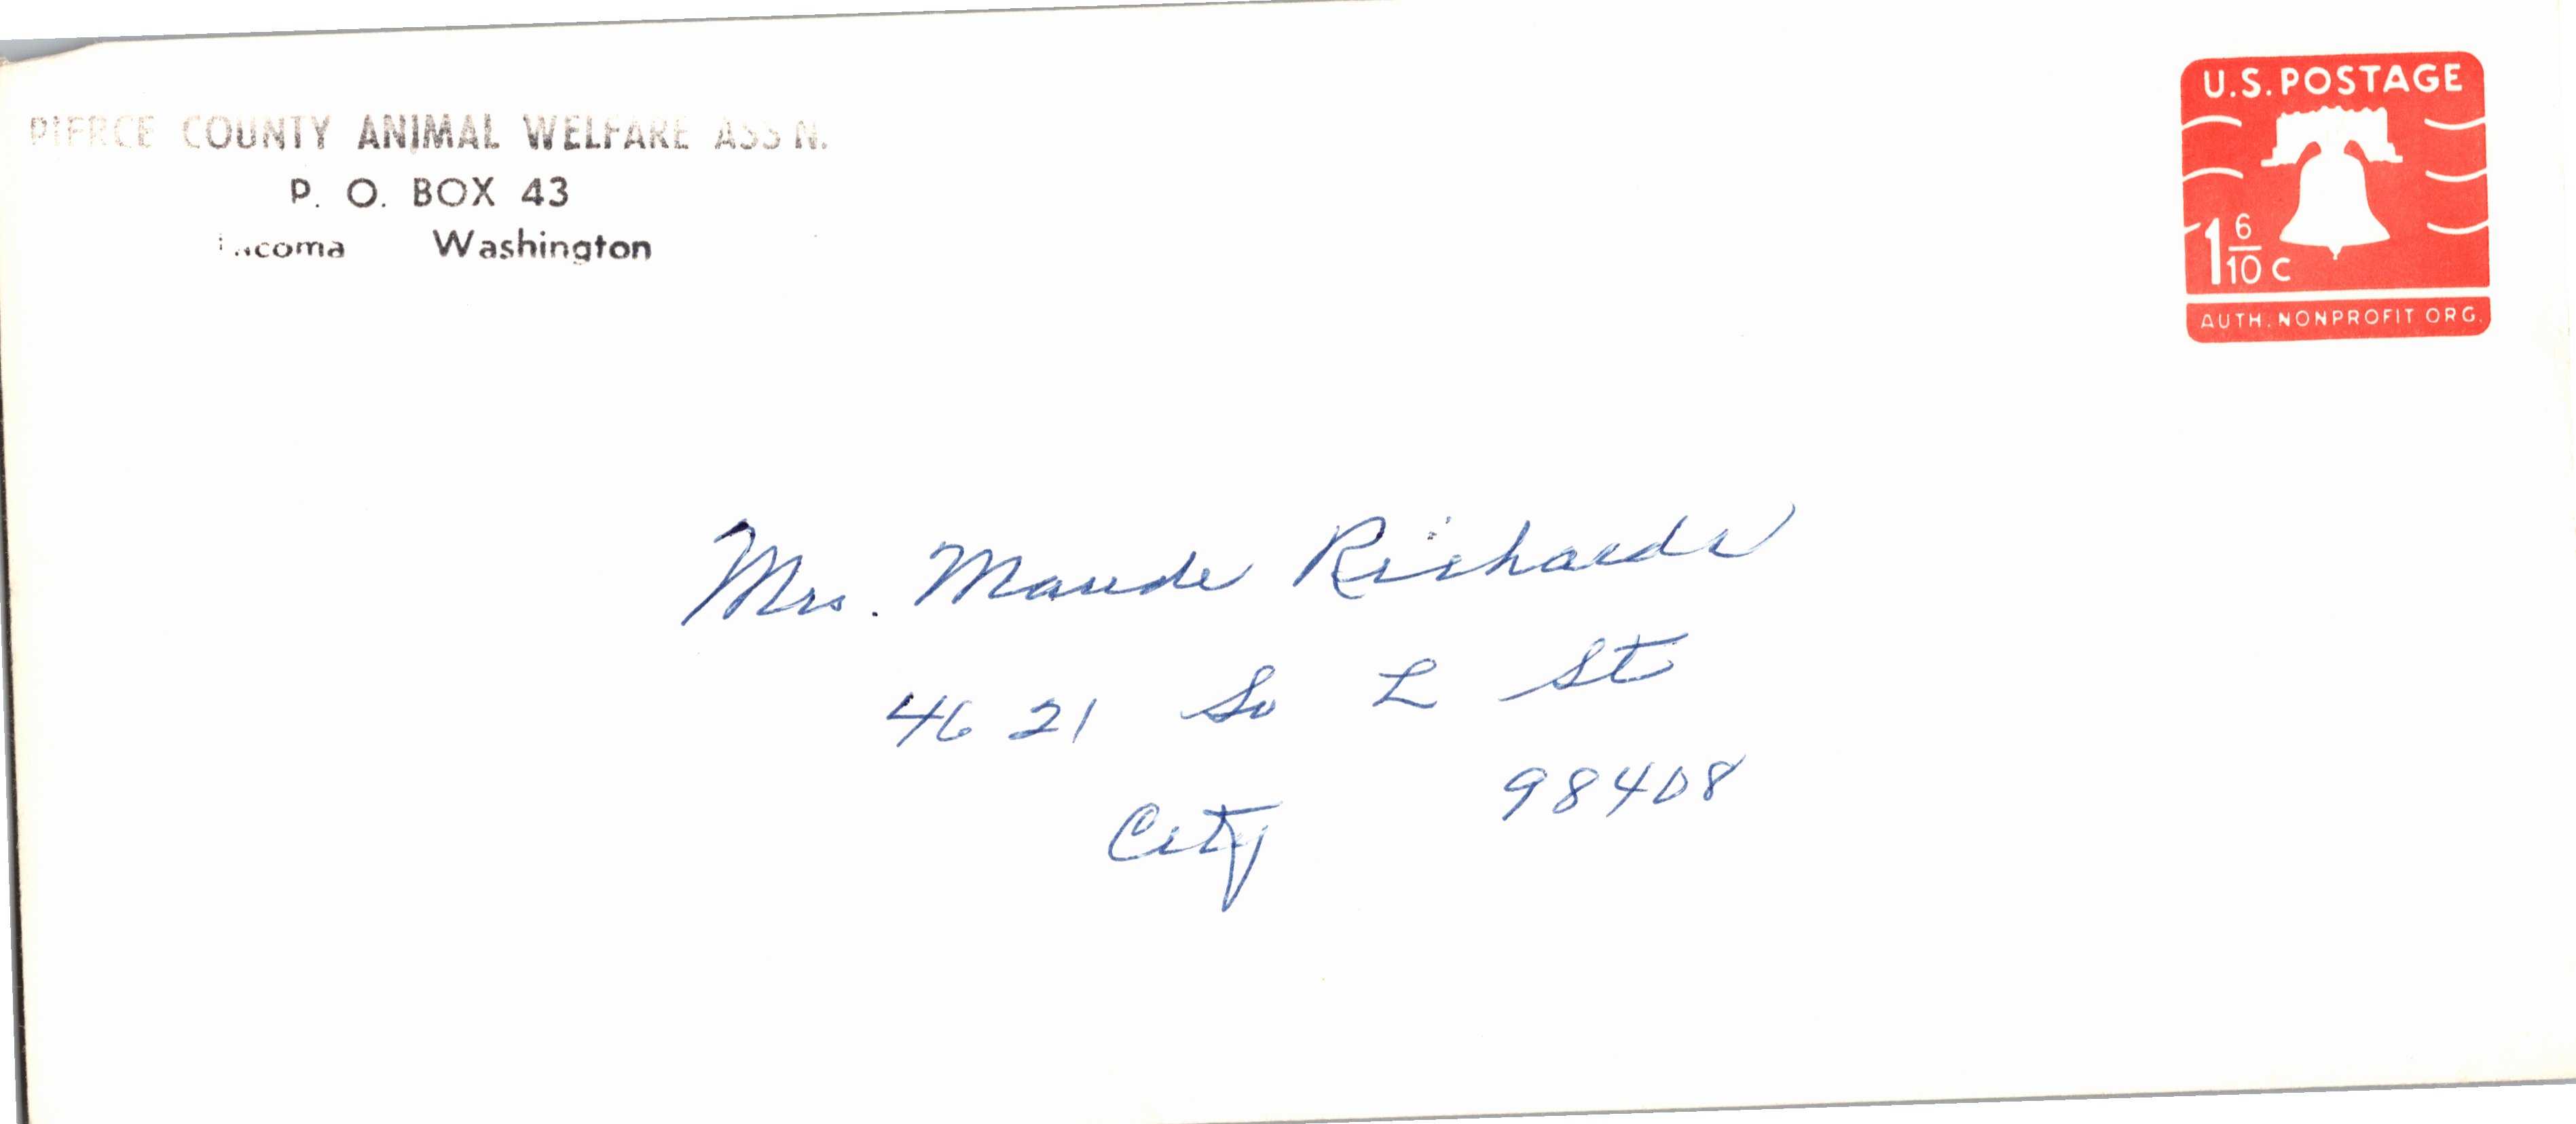 PIERCE COUNTY ANIMAL WELFARE ASS'N.
P. O. BOX 43
Tacoma Washington
U.S. POSTAGE
1 6/10 c
AUTH. NONPROFIT ORG.
Mrs. Maude Richards
4621 So L St
City 98408